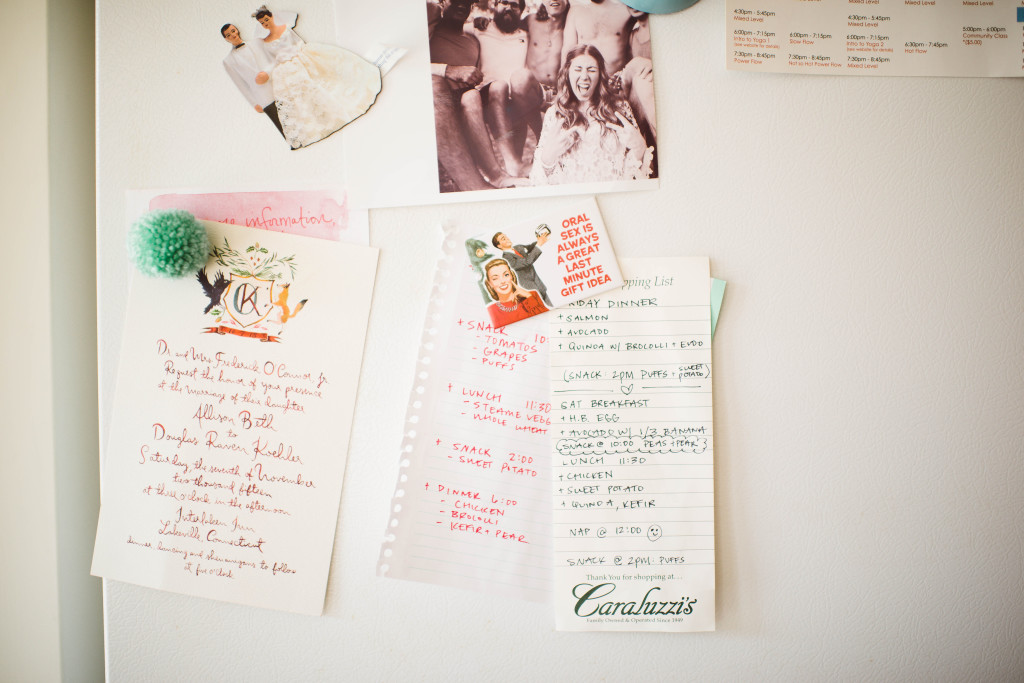 4:30pm - 5:45pm
Mixed Level
6:00pm - 7:15pm
Intro to Yoga 1
(see website for details)
7:30pm - 8:45pm
Power Flow
6:00pm - 7:15pm
Slow Flow
7:30pm - 8:45pm
Not so Hot Power Flow
Mixed Level
4:30pm - 5:45pm
Mixed Level
6:00pm - 7:15pm
Intro to Yoga 2
(see website for details)
7:30pm - 8:45pm
Mixed Level
6:30pm - 7:45pm
Hot Flow
5:00pm - 6:00pm
Community Class
*($5.00)
information
CK
Dr. and Mrs. Frederick O'Connor, Jr.
Request the honor of your presence
at the marriage of their daughter
Allison Beth
to
Douglas Raven Koehler
Saturday, the seventh of November
two thousand fifteen
at three o'clock in the afternoon
Interlaken Inn
Lakeville, Connecticut
dinner, dancing and shenanigans to follow
at five o'clock
ORAL
SEX IS
ALWAYS
A GREAT
LAST
MINUTE
GIFT IDEA
+ SNACK 10:
- TOMATOS
- GRAPES
- PUFFS
+ LUNCH 11:30
- STEAMED VEGG
- WHOLE WHEAT
+ SNACK 2:00
- SWEET POTATO
+ DINNER 6:00
- CHICKEN
- BROLOLLI
- KEFIR + PEAR
pping List
DAY DINNER
+ SALMON
+ AVOLADO
+ QUINOA W/ BROLOLLI + EVOO
(SNACK: 2PM PUFFS + SWEET POTATO)
SAT BREAKFAST
+ H.B. EGG
+ AVOLADO W/ 1/3 BANANA
{SNACK @ 10:00 PEAS + PEAR}
LUNCH 11:30
+ CHICKEN
+ SWEET POTATO
+ QUINOA, KEFIR
NAP @ 12:00
SNACK @ 2PM: PUFFS
Thank You for shopping at....
Caraluzzi's
Family Owned & Operated Since 1949